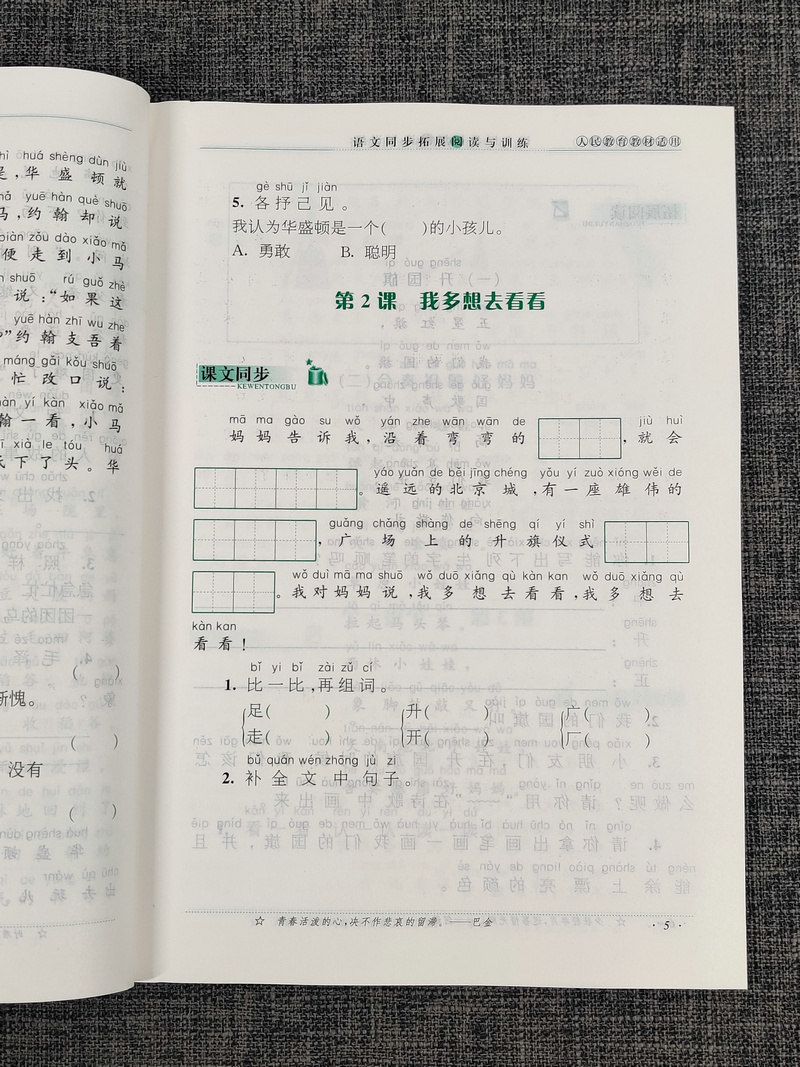 语文同步拓展阅读与训练 人民教育教材适用
gè shū jǐ jiàn
5. 各抒己见。
我认为华盛顿是一个( )的小孩儿。
A. 勇敢 B. 聪明
第2课 我多想去看看
课文同步
KEWENTONGBU
mā ma gào su wǒ yán zhe wān wān de jiù huì
妈妈告诉我,沿着弯弯的 ,就会
yáo yuǎn de běi jīng chéng yǒu yí zuò xióng wěi de
。遥远的北京城,有一座雄伟的
guǎng chǎng shàng de shēng qí yí shì
,广场上的升旗仪式
wǒ duì mā ma shuō wǒ duō xiǎng qù kàn kan wǒ duō xiǎng qù
。我对妈妈说,我多想去看看,我多想去
kàn kan
看看!
bǐ yi bǐ zài zǔ cí
1. 比一比,再组词。
足( ) 升( ) 广( )
走( ) 开( ) 厂( )
bǔ quán wén zhōng jù zi
2. 补全文中句子。
☆ 青春活泼的心,决不作悲哀的留滞。——巴金
·5·
huá shèng dùn jiù
华盛顿就
yuē hàn què shuō
马,约翰却说
zǒu dào xiǎo mǎ
便走到小马
shuō rú guǒ zhè
说:“如果这
yuē hàn zhī wu zhe
”约翰支吾着
máng gǎi kǒu shuō
忙改口说:
hàn yí kàn xiǎo mǎ
翰一看,小马
xià le tóu huá
下了头。华
( )
惭愧。
( )
没有
( )